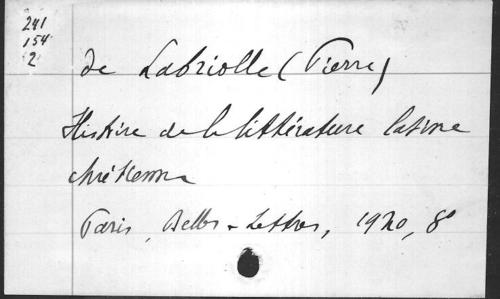 241
154
2
de Labriolle (Pierre)
Histoire de la littérature latine
chrétienne
Paris, Belles-Lettres, 1920, 8°